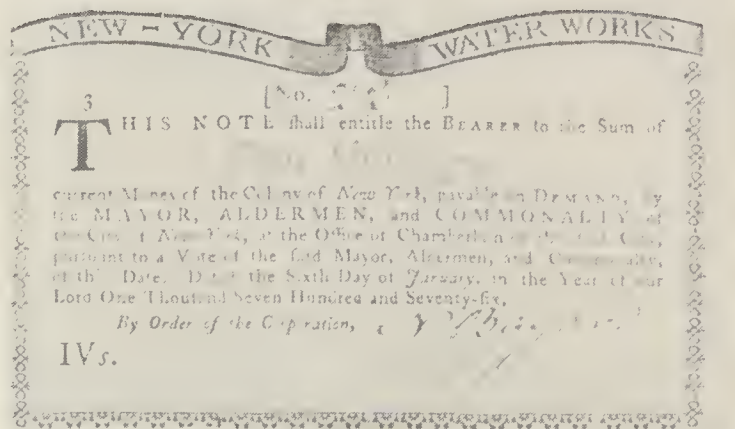 NEW-YORK WATER WORKS
3
[No. ]
THIS NOTE ſhall entitle the BEARER to the Sum of
current Money of the Colony of New York, payable on DEMAND, by
the MAYOR, ALDERMEN, and COMMONALTY of
the City of New York, at the Office of Chamberlain of the ſaid City,
purſuant to a Vote of the ſaid Mayor, Aldermen, and Commonalty,
of this Date. Dated the Sixth Day of January, in the Year of our
Lord One Thouſand Seven Hundred and Seventy-ſix.
By Order of the Corporation,
IVs.